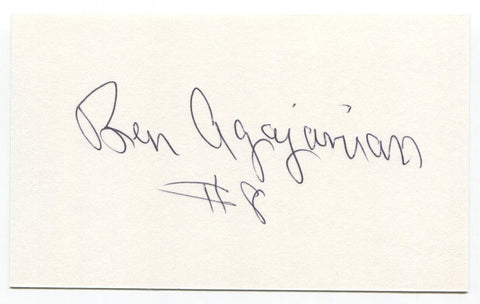 Ben Agajanian
#8